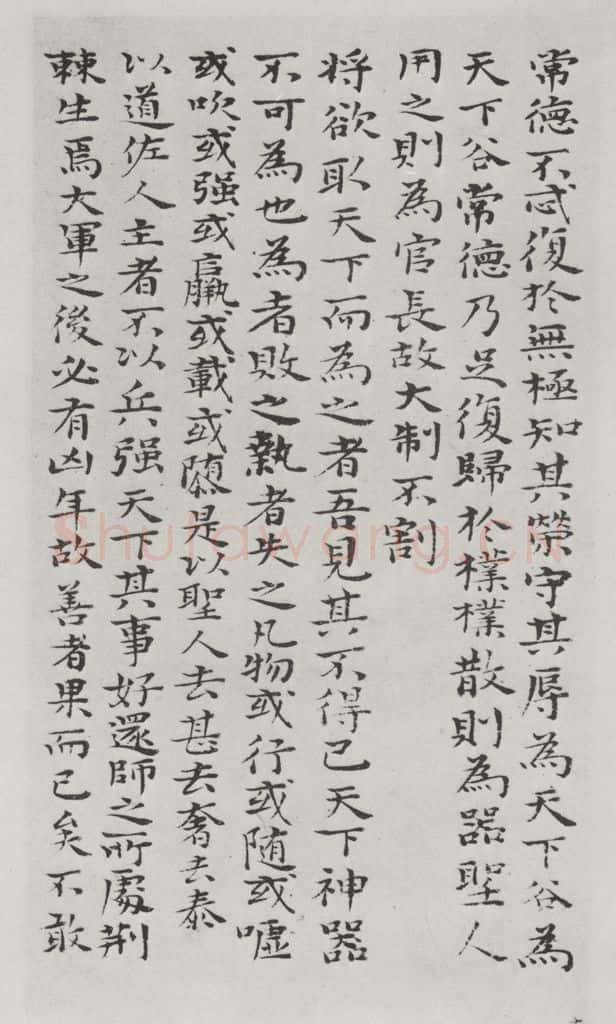 常德不忒復於無極知其榮守其辱為天下谷為
天下谷常德乃足復歸於樸樸散則為器聖人
用之則為官長故大制不割
将欲取天下而為之者吾見其不得已天下神器
不可為也為者敗之執者失之凡物或行或随或嘘
或吹或强或羸或載或隳是以聖人去甚去奢去泰
以道佐人主者不以兵强天下其事好還師之所處荆
棘生焉大軍之後必有凶年故善者果而已矣不敢
Shufawang.CN